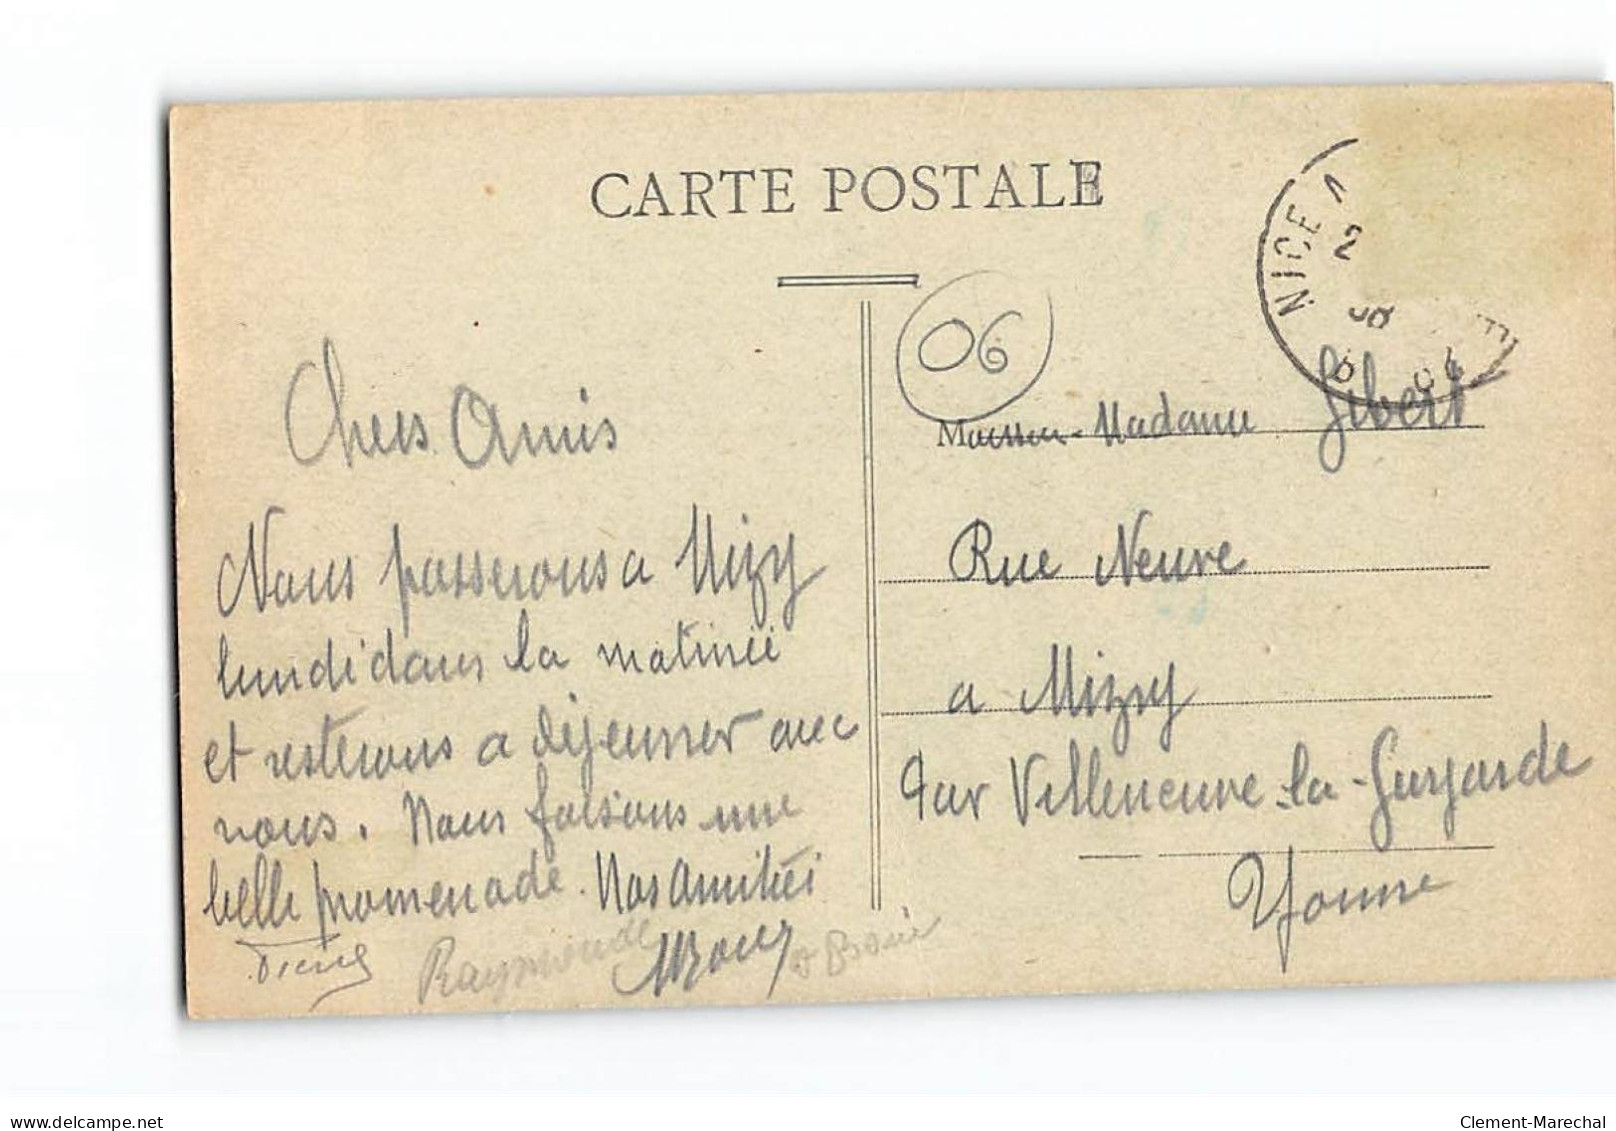 CARTE POSTALE
NICE A
2
06
Chers Amis
Nous passerons a Mizy
lundi dans la matinée
et resterons a déjeunner avec
vous. Nous faisons une
belle promenade. Nos Amitiés
Pierre Raymonde
Monsieur Madame Gibert
Rue Neuve
a Mizy
Par Villeneuve-la-Guyarde
Yonne
www.delcampe.net
Clement-Marechal